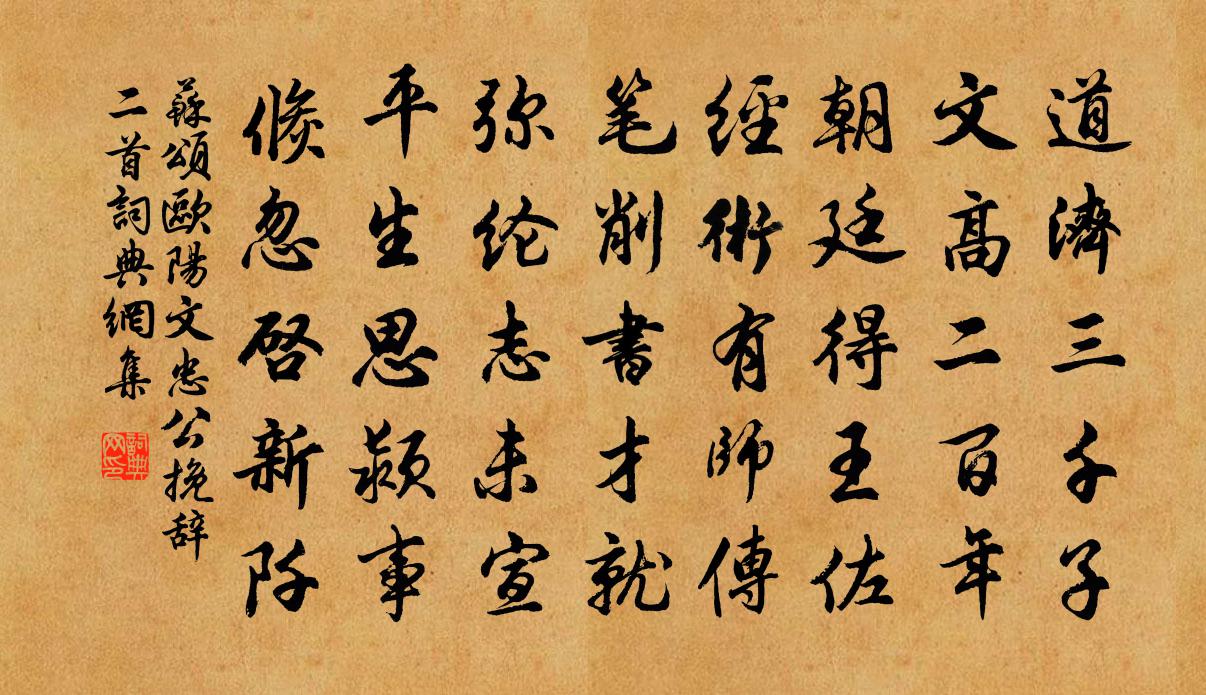 道濟三千子
文高二百年
朝廷得王佐
經術有師傳
笔削書才就
弥纶志未宣
平生思潁事
倐忽啓新阡
蘇頌歐陽文忠公挽辞
二首詞典網集
詞典
网印